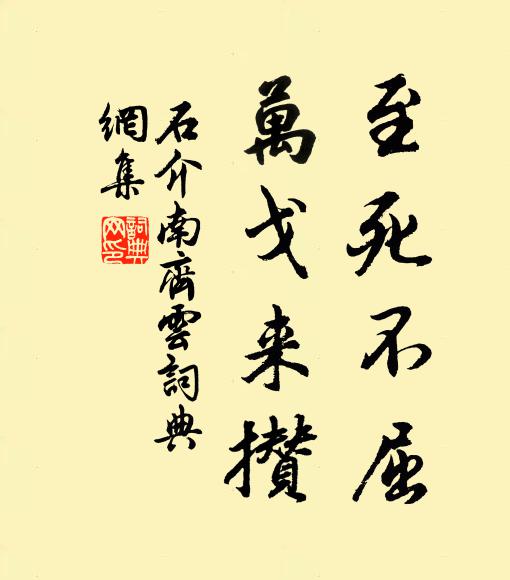 至死不屈
萬戈来攒
石介南齊雲詞典
網集
詞典
网印